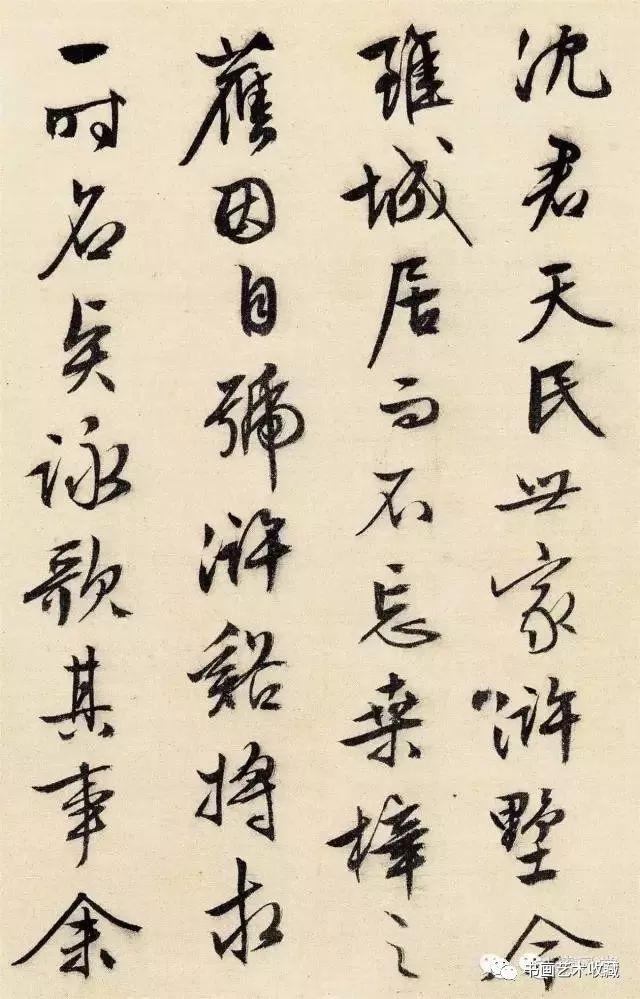 沈君天民世家滸墅今
雖城居而不忘桑梓之
舊因自號滸谿將求
一時名勝詠歌其事余
书画艺术收藏